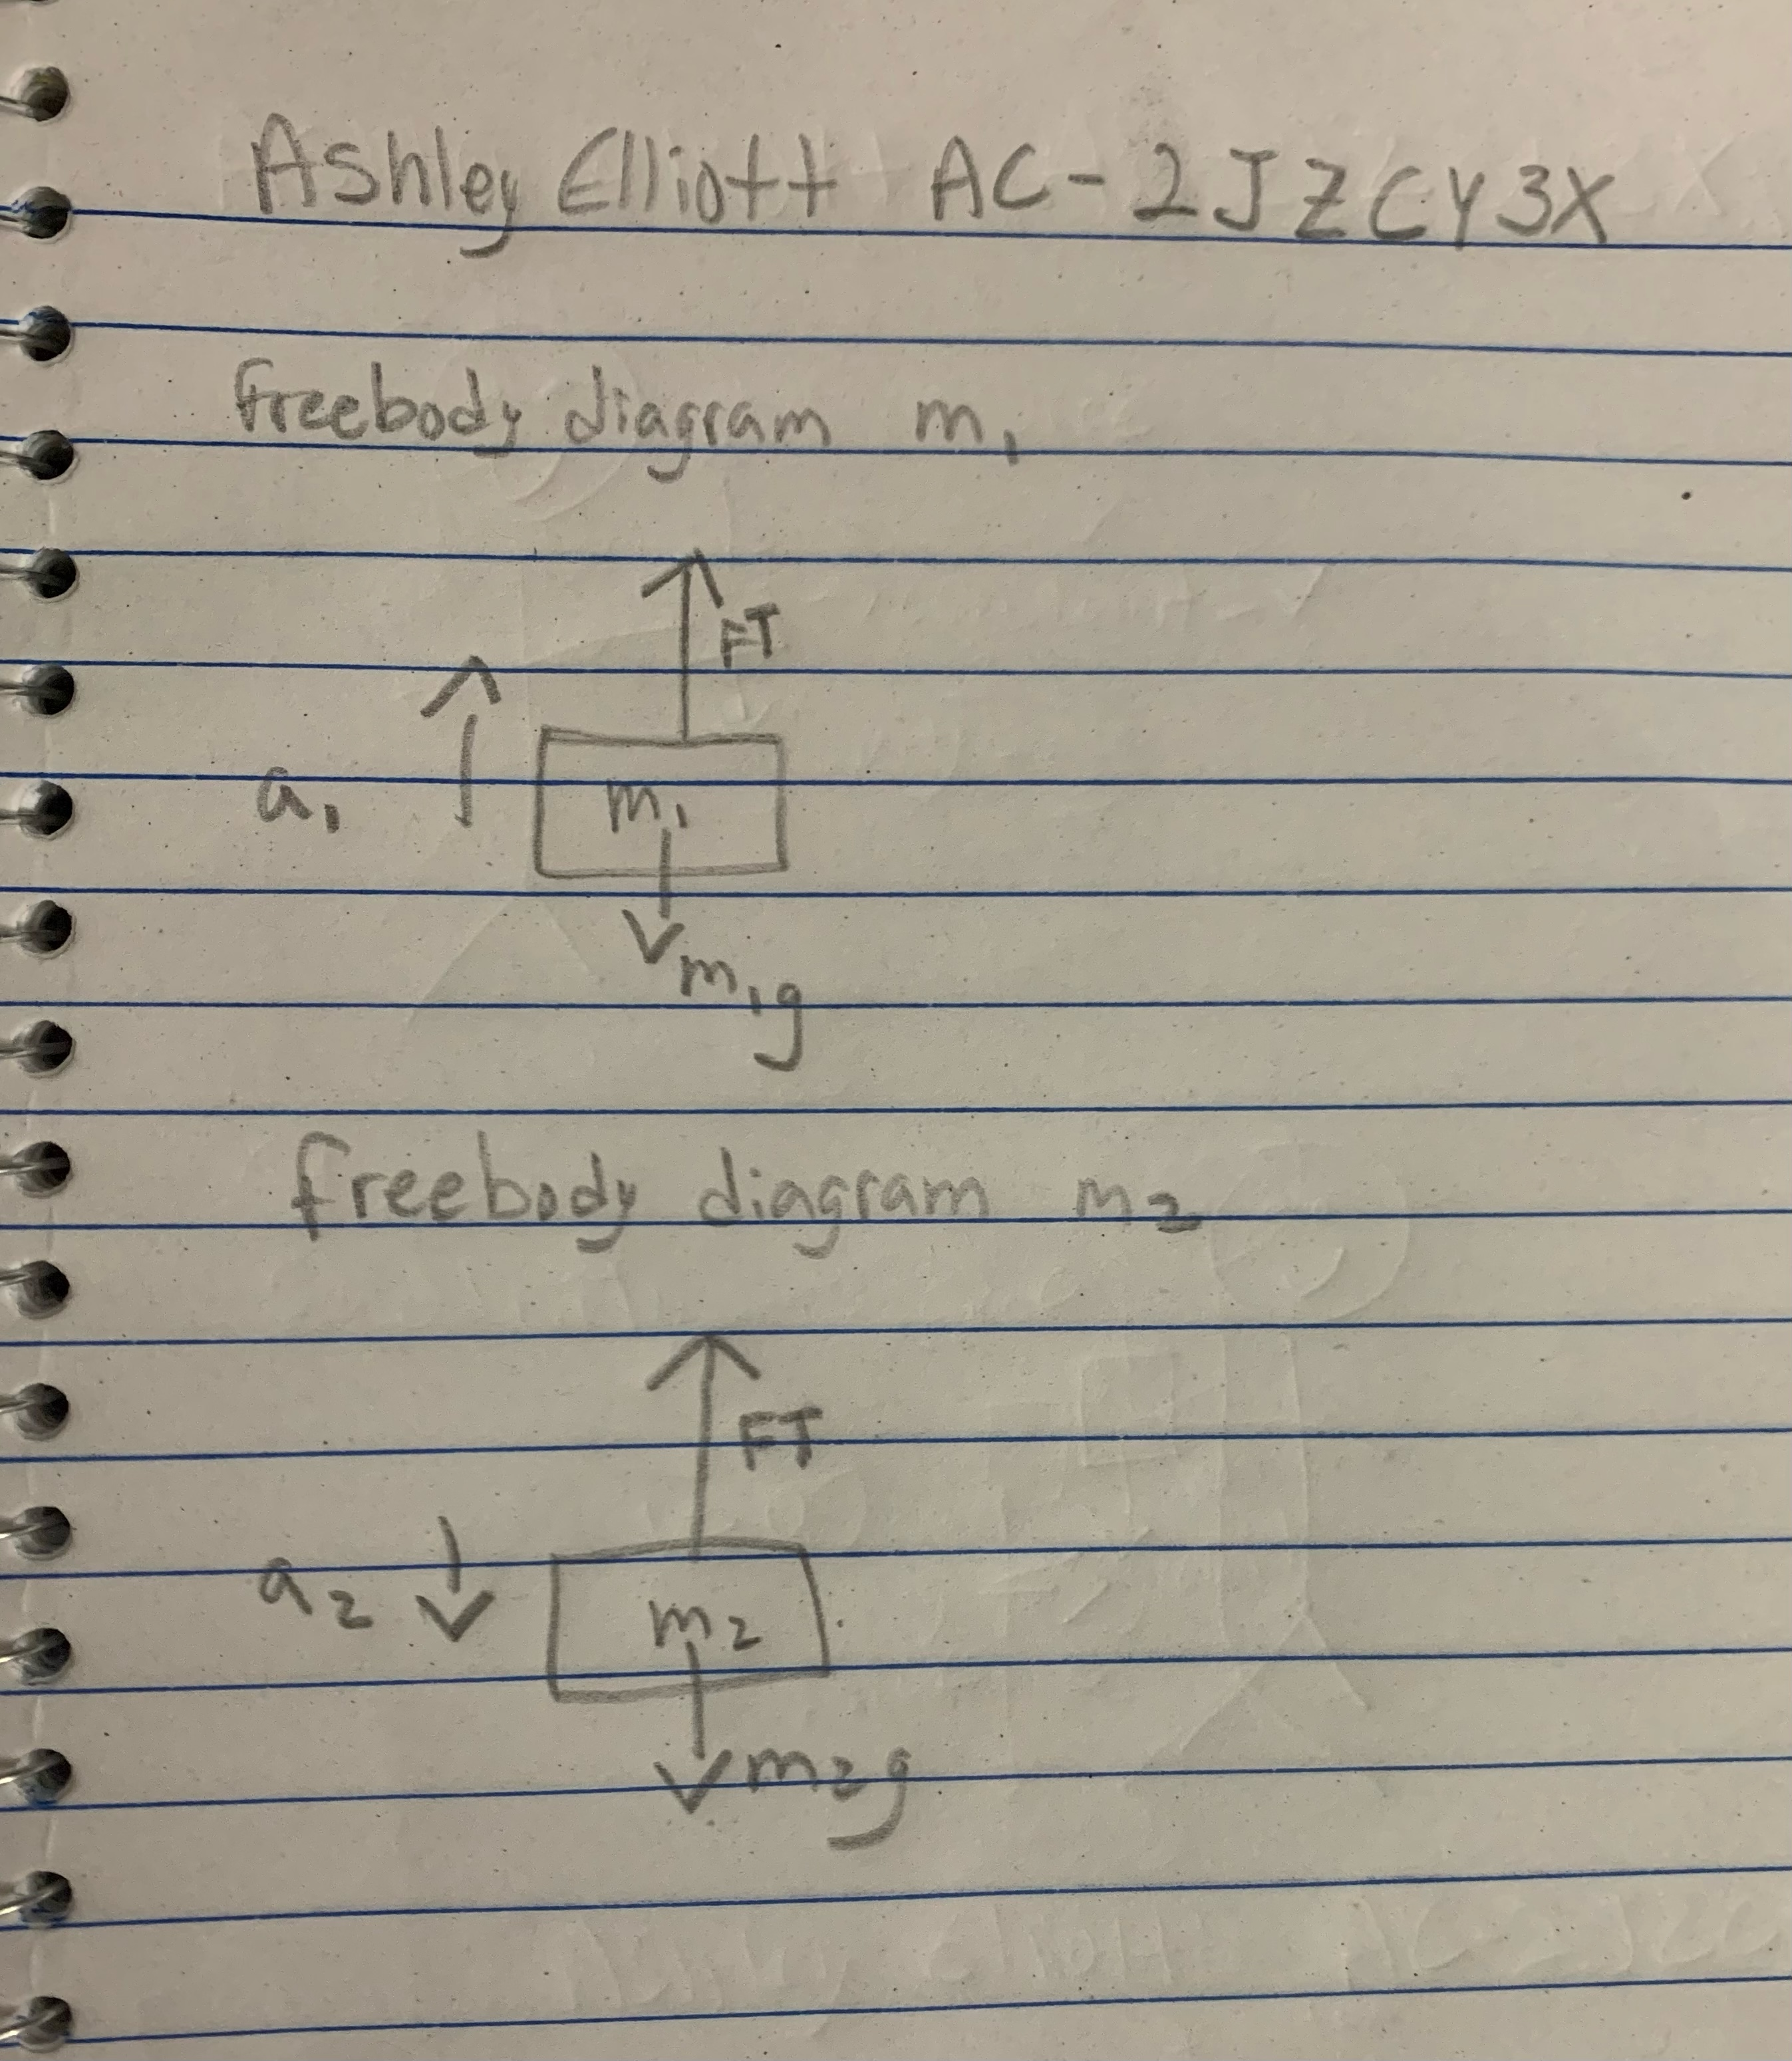 Ashley Elliott AC-2JZCY3X
freebody diagram m₁
FT
a₁
m₁
m₁g
freebody diagram m₂
FT
a₂
m₂
m₂g